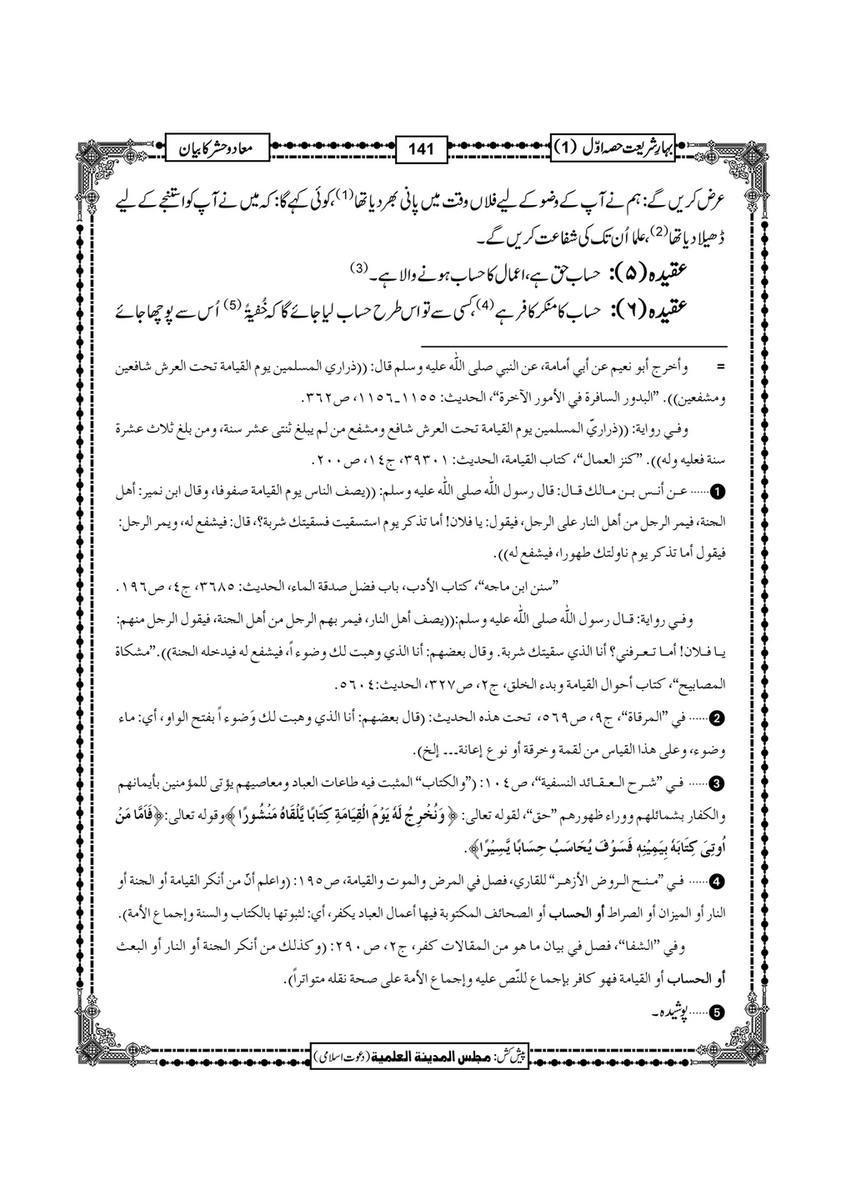 بہارِ شریعت حصہ اوّل (1)
141
معاد و حشر کا بیان
عرض کریں گے: ہم نے آپ کے وضو کے لیے فلاں وقت میں پانی بھر دیا تھا (1)، کوئی کہے گا: کہ میں نے آپ کو استنجے کے لیے
ڈھیلا دیا تھا (2)، علما اُن تک کی شفاعت کریں گے۔
عقیدہ (۵): حساب حق ہے، اعمال کا حساب ہونے والا ہے۔ (3)
عقیدہ (۶): حساب کا منکر کافر ہے (4)، کسی سے تو اس طرح حساب لیا جائے گا کہ خُفیۃً (5) اُس سے پوچھا جائے
= وأخرج أبو نعيم عن أبي أمامة، عن النبي صلى الله عليه وسلم قال: ((ذراري المسلمين يوم القيامة تحت العرش شافعين
ومشفعين)). ”البدور السافرة في الأمور الآخرة“، الحديث: ١١٥٥ـ١١٥٦، ص٣٦٢.
وفي رواية: ((ذراريّ المسلمين يوم القيامة تحت العرش شافع ومشفع من لم يبلغ ثنتى عشر سنة، ومن بلغ ثلاث عشرة
سنة فعليه وله)). ”كنز العمال“، كتاب القيامة، الحديث: ٣٩٣٠١، ج١٤، ص٢٠٠.
1...... عن أنس بن مالك قال: قال رسول الله صلى الله عليه وسلم: ((يصف الناس يوم القيامة صفوفا، وقال ابن نمير: أهل
الجنة، فيمر الرجل من أهل النار على الرجل، فيقول: يا فلان! أما تذكر يوم استسقيت فسقيتك شربة؟، قال: فيشفع له، ويمر الرجل:
فيقول أما تذكر يوم ناولتك طهورا، فيشفع له)).
”سنن ابن ماجه“، كتاب الأدب، باب فضل صدقة الماء، الحديث: ٣٦٨٥، ج٤، ص١٩٦.
وفي رواية: قال رسول الله صلى الله عليه وسلم:((يصف أهل النار، فيمر بهم الرجل من أهل الجنة، فيقول الرجل منهم:
يا فلان! أما تعرفني؟ أنا الذي سقيتك شربة. وقال بعضهم: أنا الذي وهبت لك وضوءاً، فيشفع له فيدخله الجنة)).”مشكاة
المصابيح“، كتاب أحوال القيامة وبدء الخلق، ج٢، ص٣٢٧، الحديث:٥٦٠٤.
2...... في ”المرقاة“، ج٩، ص٥٦٩، تحت هذه الحديث: (قال بعضهم: أنا الذي وهبت لك وَضوءاً بفتح الواو، أي: ماء
وضوء، وعلى هذا القياس من لقمة وخرقة أو نوع إعانة... إلخ).
3...... في ”شرح العقائد النسفية“، ص١٠٤: (”والكتاب“ المثبت فيه طاعات العباد ومعاصيهم يؤتى للمؤمنين بأيمانهم
والكفار بشمائلهم ووراء ظهورهم ”حق“، لقوله تعالى: ﴿ وَنُخْرِجُ لَهُ يَوْمَ الْقِيَامَةِ كِتَابًا يَّلْقَاهُ مَنْشُورًا ﴾وقوله تعالى:﴿فَاَمَّا مَنْ
اُوتِىَ كِتَابَهُ بِيَمِيْنِهٖ فَسَوْفَ يُحَاسَبُ حِسَابًا يَّسِيْرًا﴾.
4...... في ”منح الروض الأزهر“ للقاري، فصل في المرض والموت والقيامة، ص١٩٥: (واعلم أنّ من أنكر القيامة أو الجنة أو
النار أو الميزان أو الصراط أو الحساب أو الصحائف المكتوبة فيها أعمال العباد يكفر، أي: لثبوتها بالكتاب والسنة وإجماع الأمة).
وفي ”الشفا“، فصل في بيان ما هو من المقالات كفر، ج٢، ص٢٩٠: (وكذلك من أنكر الجنة أو النار أو البعث
أو الحساب أو القيامة فهو كافر بإجماع للنّص عليه وإجماع الأمة على صحة نقله متواتراً).
5...... پوشیدہ۔
پیش کش: مجلس المدینۃ العلمیۃ (دعوت اسلامی)